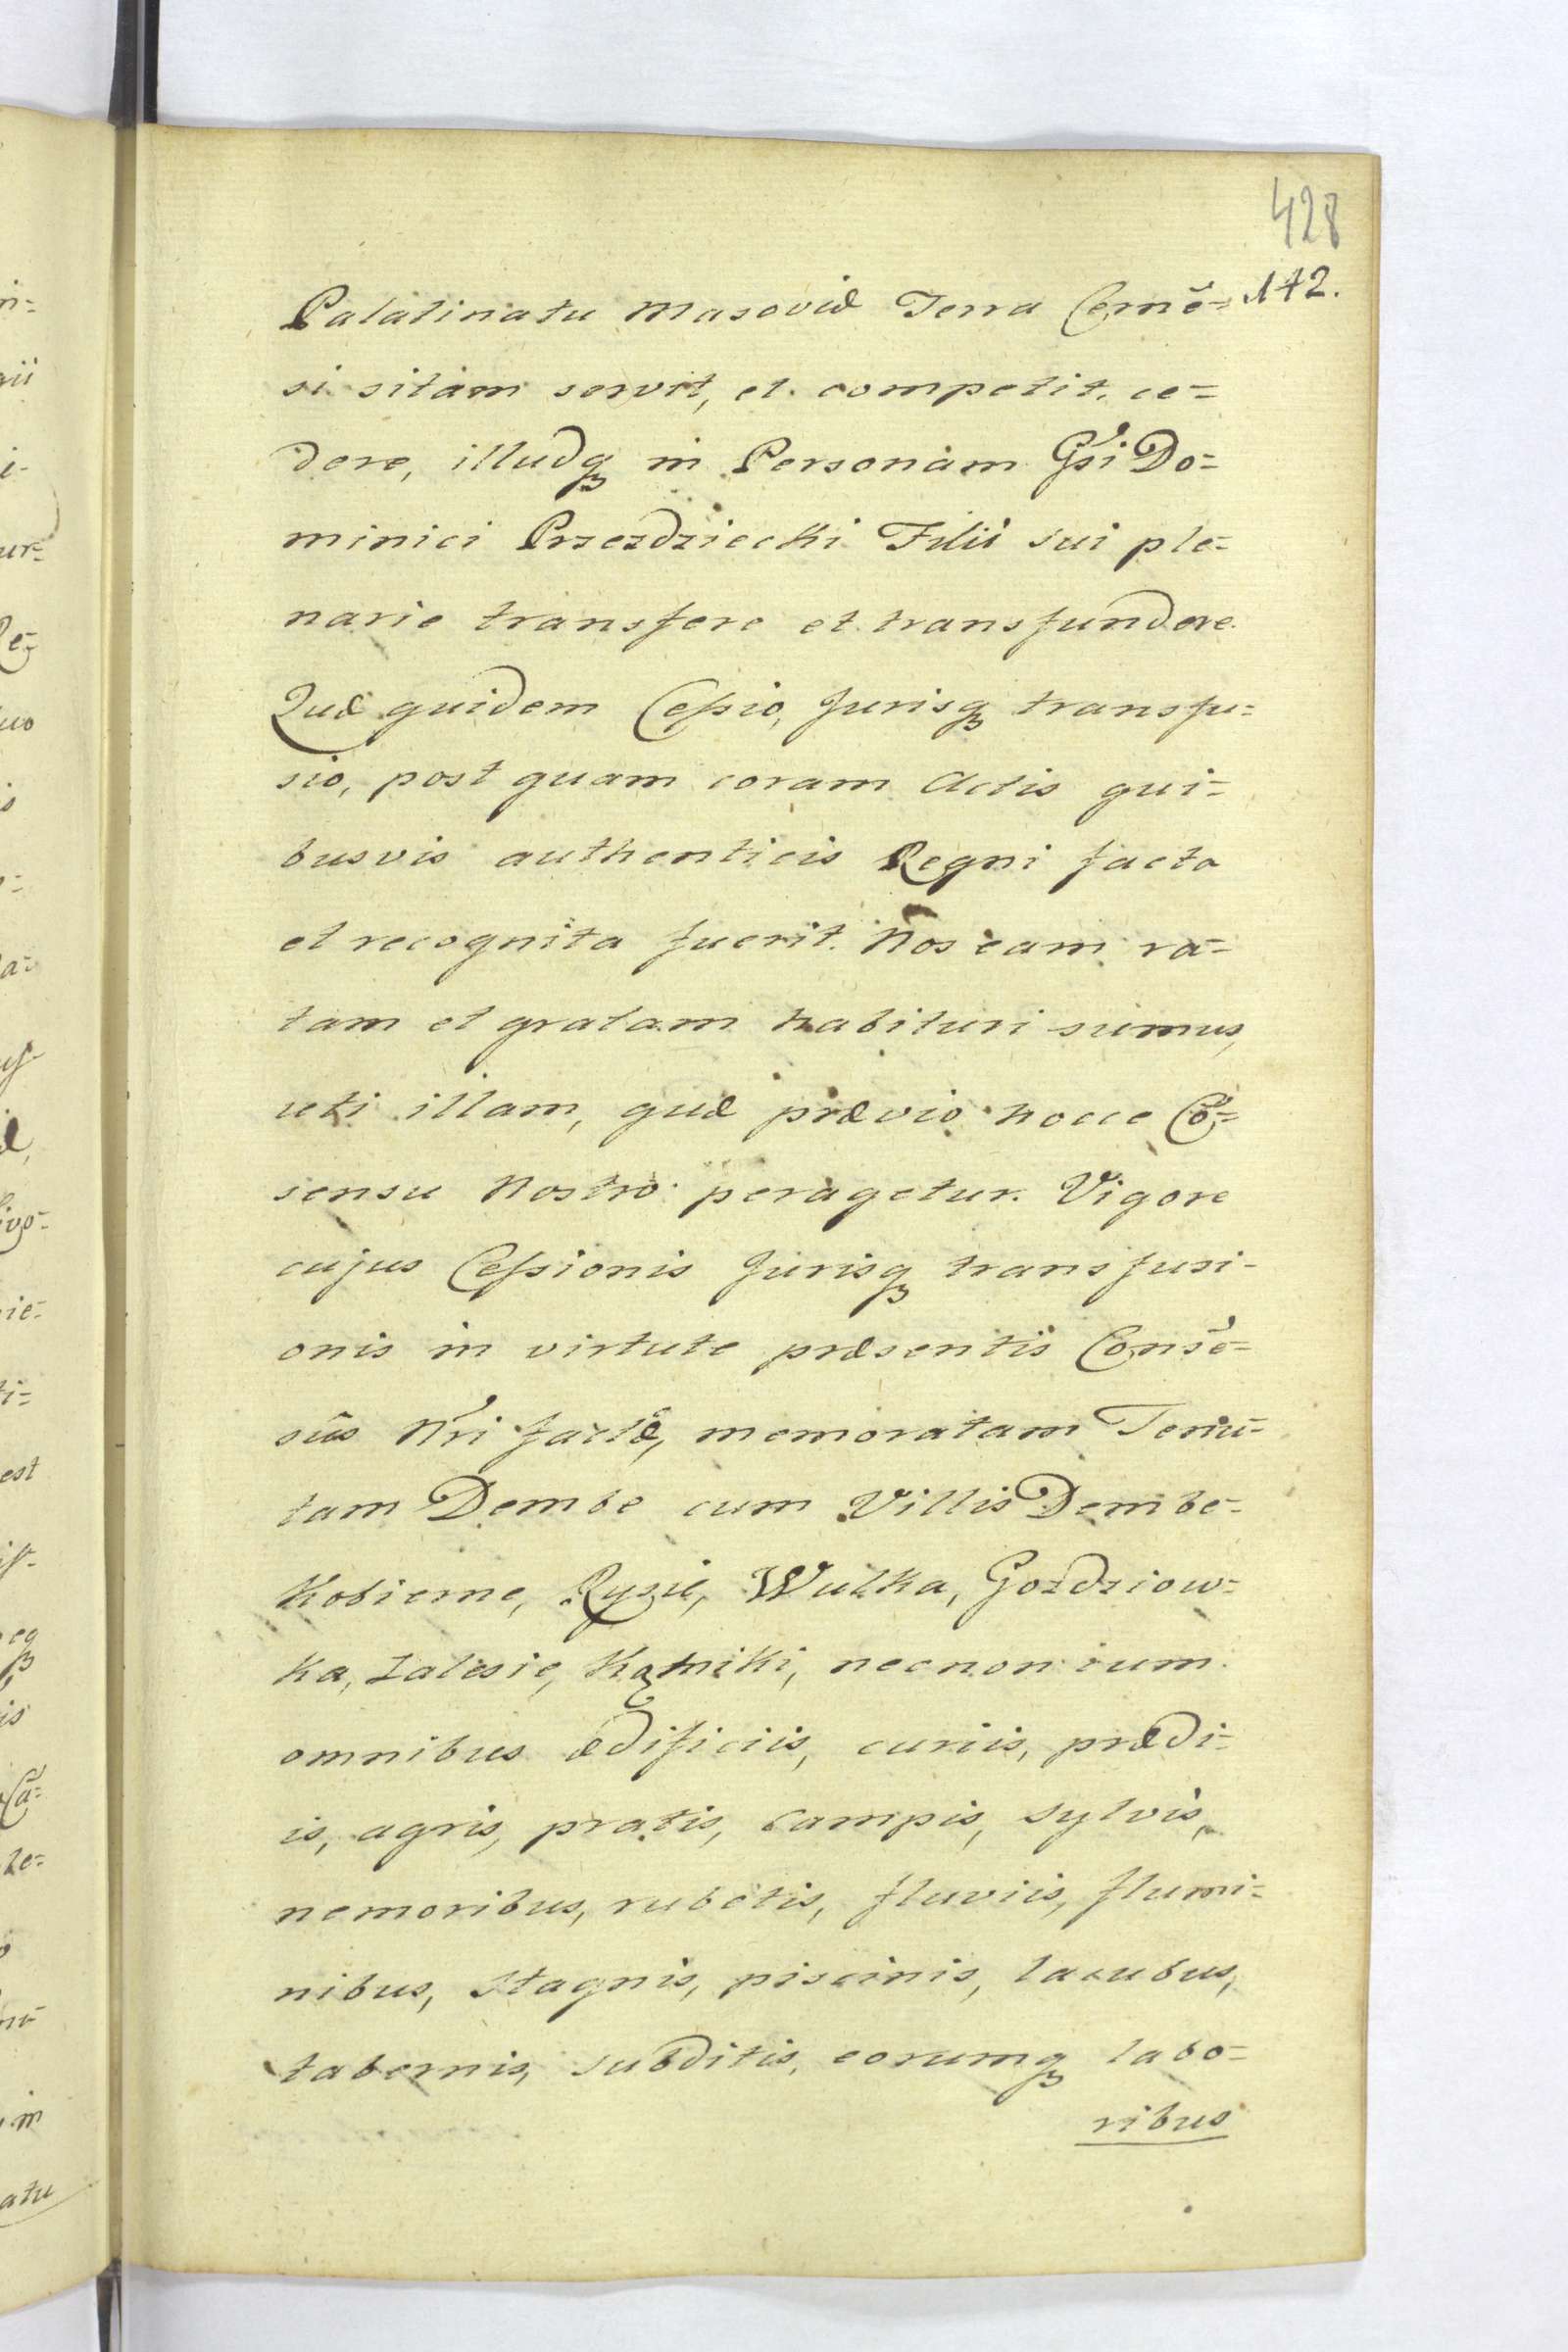 428
142.
Palatinatu Masoviæ Terra Cernē=
si sitam servit, et competit, ce=
dere, illudq̃ in Personam Gsi Do=
minici Przezdziecki Filii sui ple=
narie transfere et transfundere.
Quæ quidem Cessio, Jurisq̃ transfu=
sio, post quam coram Actis qui=
busvis authenticis Regni facta
et recognita fuerit. Nos eam ra=
tam et gratam habituri sumus,
uti illam, quæ prævio hocce Cō=
sensu Nostro peragetur. Vigore
cujus Cessionis Jurisq̃ transfusi-
onis in virtute præsentis Consē=
sûs Nri factæ, memoratam Tenu-
tam Dembe cum Villis Dembe-
Kobierne, Rysie, Wulka, Gozdziow=
ka, Zalesie, necnon cum
omnibus ædificiis, curiis, prædi=
is, agris, pratis, campis, sylvis,
nemoribus, rubetis, fluviis, flumi=
nibus, stagnis, piscinis, lacubus,
tabernis, subditis, eorumq̃ labo=
ribus